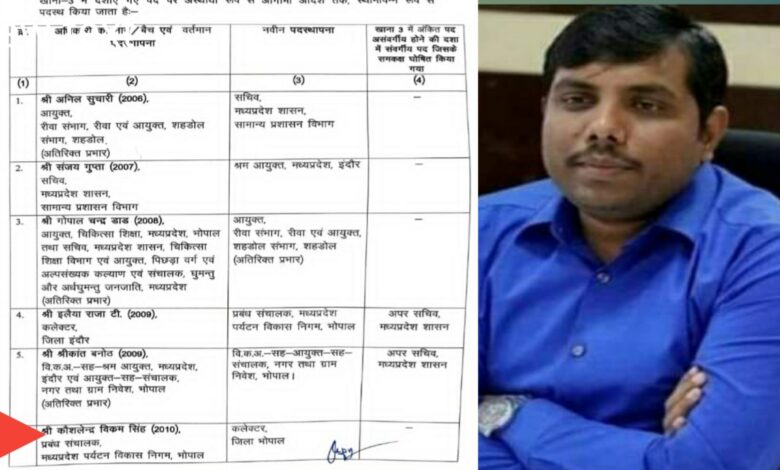 खाना–3 में दर्शाए गए पद पर अस्थायी रूप से आगामी आदेश तक, स्थानापन्न रूप से
पदस्थ किया जाता है:–
वर्तमान
नवीन पदस्थापना
खाना 3 में अंकित पद
असंवर्गीय होने की दशा
में संवर्गीय पद जिसके
समकक्ष घोषित किया
गया
(1) (2) (3) (4)
1. श्री अनिल सुचारी (2006),
आयुक्त,
रीवा संभाग, रीवा एवं आयुक्त, शहडोल
संभाग, शहडोल,
(अतिरिक्त प्रभार)
सचिव,
मध्यप्रदेश शासन,
सामान्य प्रशासन विभाग
–
2. श्री संजय गुप्ता (2007)
सचिव,
मध्यप्रदेश शासन,
सामान्य प्रशासन विभाग
श्रम आयुक्त, मध्यप्रदेश, इंदौर
–
3. श्री गोपाल चन्द्र डाड (2008),
आयुक्त, चिकित्सा शिक्षा, मध्यप्रदेश, भोपाल
तथा सचिव, मध्यप्रदेश शासन, चिकित्सा
शिक्षा विभाग एवं आयुक्त, पिछड़ा वर्ग एवं
अल्पसंख्यक कल्याण एवं संचालक, घुमन्तु
और अर्धघुमन्तु जनजाति, मध्यप्रदेश
(अतिरिक्त प्रभार)
आयुक्त,
रीवा संभाग, रीवा एवं आयुक्त,
शहडोल संभाग, शहडोल
(अतिरिक्त प्रभार)
–
4. श्री इलैया राजा टी. (2009),
कलेक्टर,
जिला इंदौर
प्रबंध संचालक, मध्यप्रदेश
पर्यटन विकास निगम, भोपाल
अपर सचिव,
मध्यप्रदेश शासन
5. श्री श्रीकांत बनोठ (2009),
वि.क.अ.–सह–श्रम आयुक्त, मध्यप्रदेश,
इंदौर एवं आयुक्त–सह–संचालक,
नगर तथा ग्राम निवेश, भोपाल
(अतिरिक्त प्रभार)
वि.क.अ.–सह–आयुक्त–सह–
संचालक, नगर तथा ग्राम
निवेश, भोपाल।
अपर सचिव,
मध्यप्रदेश शासन
श्री कौशलेन्द्र विकम सिंह (2010),
प्रबंध संचालक,
मध्यप्रदेश पर्यटन विकास निगम, भोपाल
कलेक्टर,
जिला भोपाल
–